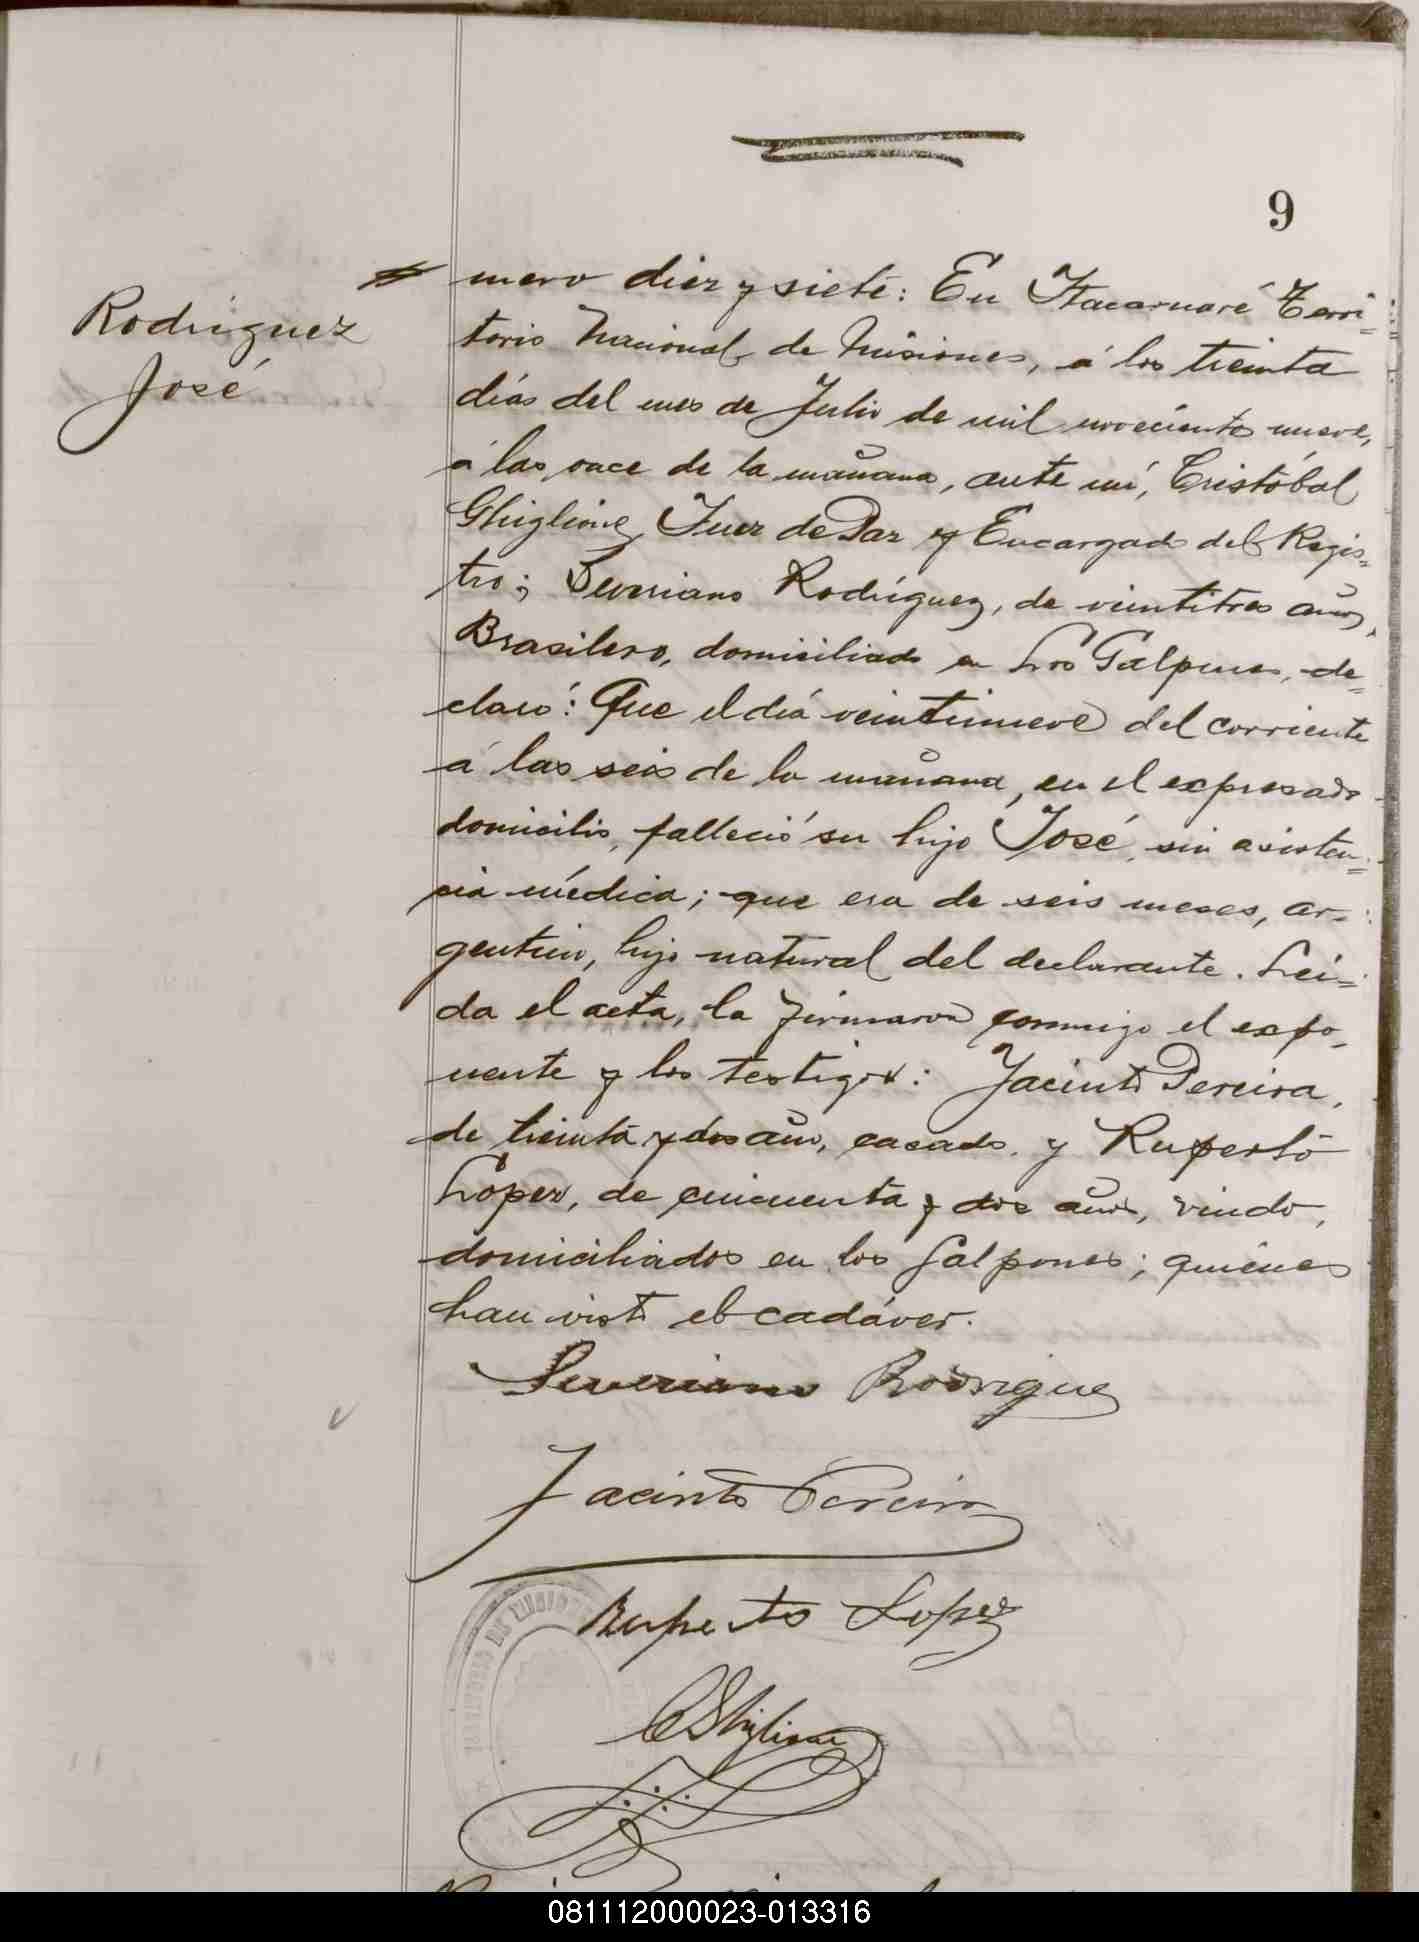 9
Rodriguez
José
mero diez y siete: En Itacaruaré Terri=
torio Nacional de Misiones, á los treinta
días del mes de Julio de mil novecientos nueve,
á las once de la mañana, ante mí, Cristóbal
Ghiglione, Juez de Paz y Encargado del Regis=
tro; Severiano Rodríguez, de veintitres años,
Brasilero, domiciliado en Los Galpones, de=
claró: Que el día veintinueve del corriente
á las seis de la mañana, en el expresado
domicilio, falleció su hijo José, sin asisten=
cia médica; que era de seis meses, ar-
gentino, hijo natural del declarante. Lei=
da el acta, la firmaron conmigo el expo-
nente y los testigos: Jacinto Pereira,
de treinta y dos años, casado, y Ruperto
Lopez, de cincuenta y dos años, viudo,
domiciliados en los Galpones; quiénes
han visto el cadáver.
Severiano Rodrigue
Jacinto Pereira
Ruperto Lopez
CGhiglione
081112000023-013316